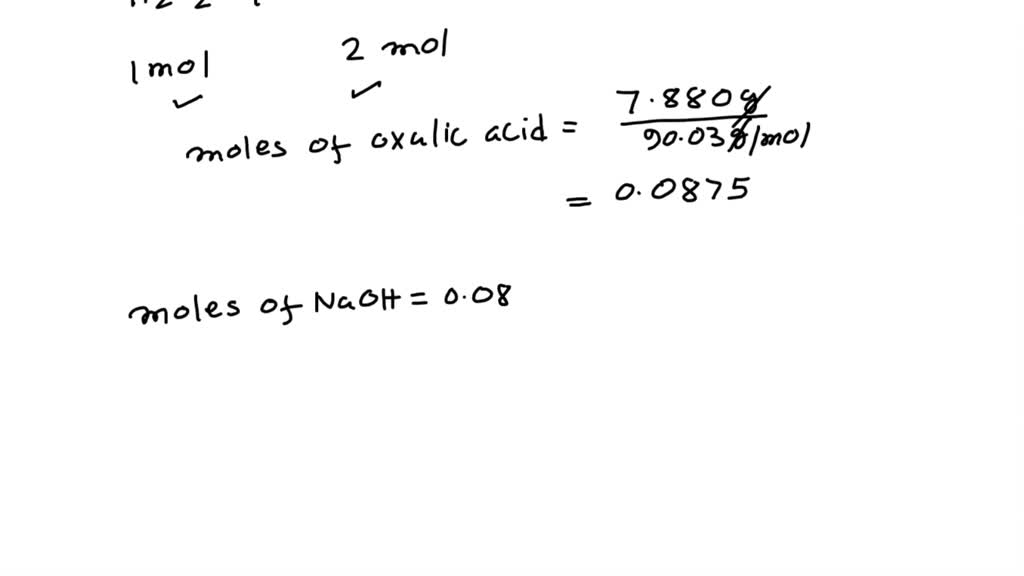 1 mol 2 mol
moles of oxalic acid = 7.880g
90.03g/mol
= 0.0875
moles of NaOH = 0.08